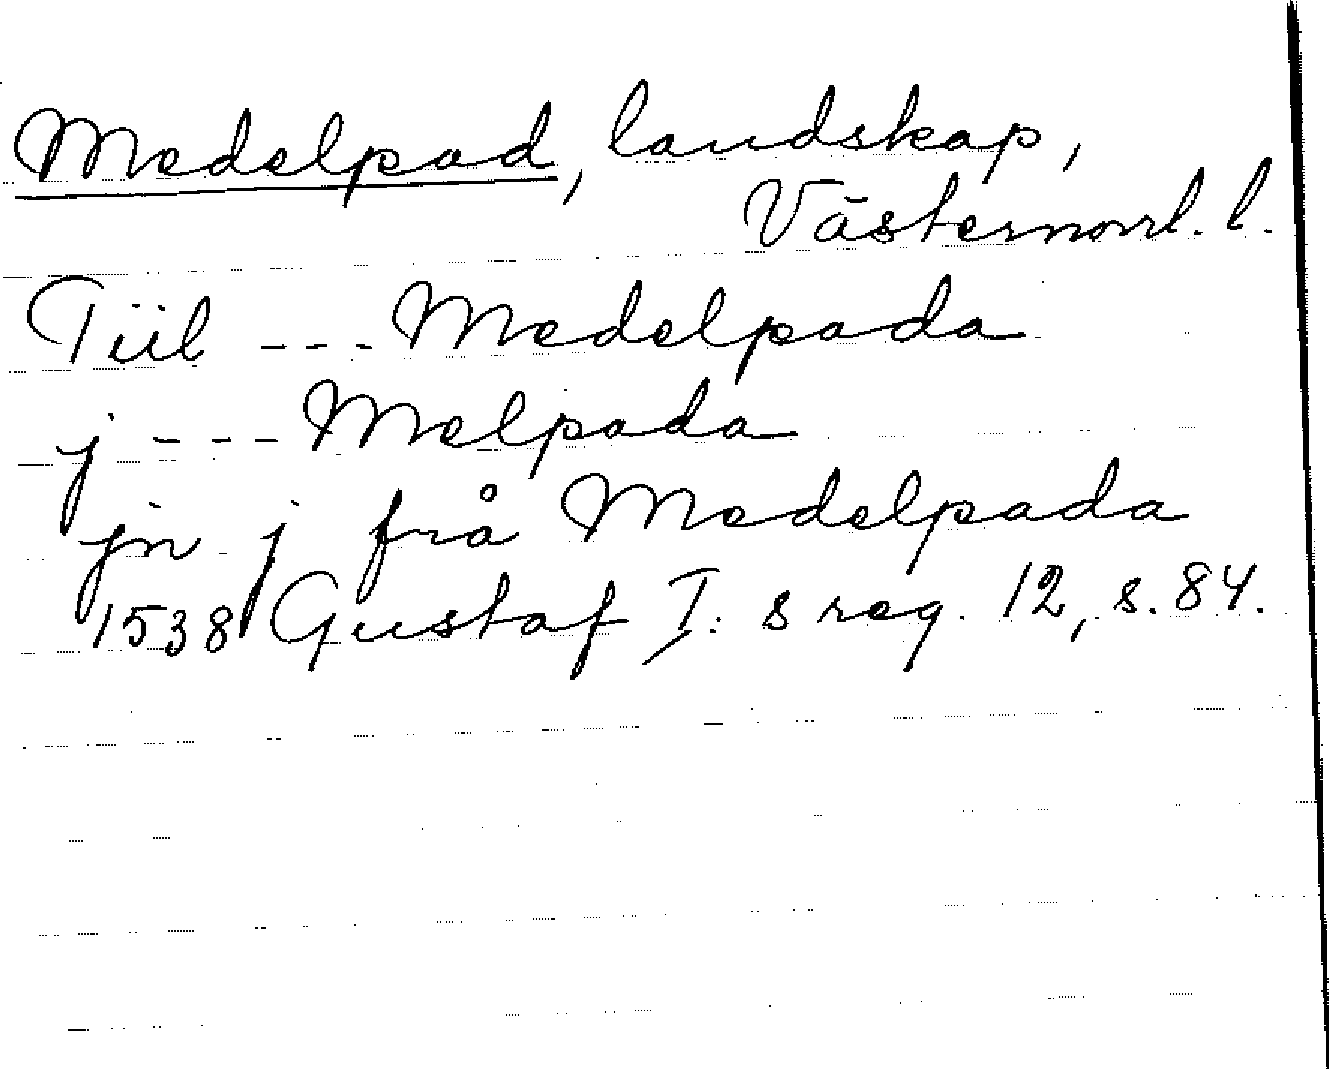 Medelpad, landskap,
Västernorrl. l.
Tiil --- Medelpada
j --- Melpada
jn j frå Medelpada
1538 Gustaf I:s reg. 12, s. 84.